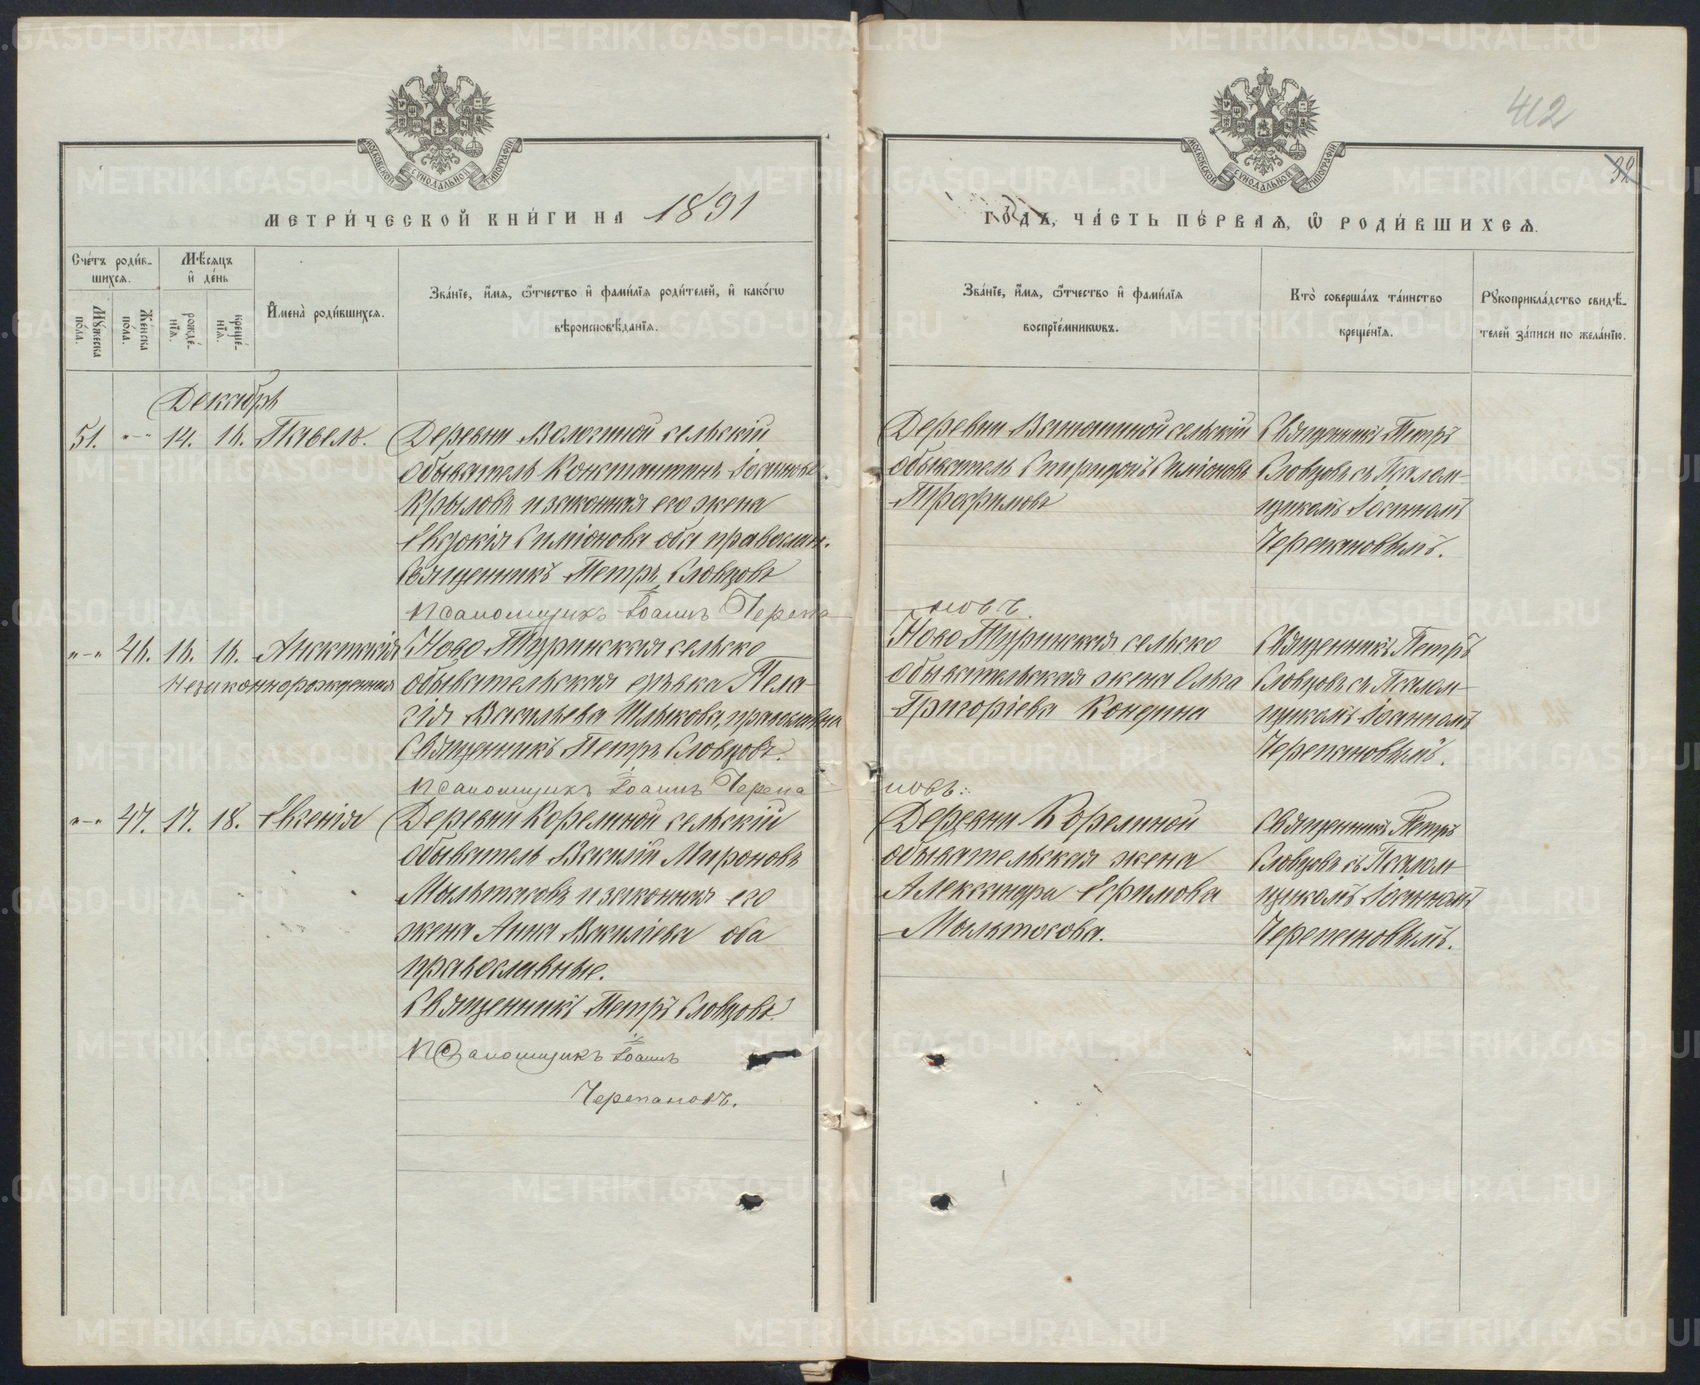 412
32
МЕТРИ́ЧЕСКОЙ КНИ́ГИ НА 1891
ГО́ДЪ, ЧА́СТЬ ПЕ́РВАЯ, Ѡ РОДИ́ВШИХСЯ.
Сче́тъ роди́в-
шихся.
Мѣ́сяцъ
и҆ де́нь
Му́жеска по́ла.
Же́нска по́ла.
рожде́-нїя.
креще́-нїя.
И҆мена̀ роди́вшихся.
Зва́нїе, и҆́мя, ѻ҆́тчество и҆ фами́лїя роди́телей, и҆ како́гѡ
вѣроисповѣ́данїя.
Зва́нїе, и҆́мя, ѻ҆́тчество и҆ фами́лїя
воспрїе́мникѡвъ.
Кто̀ соверша́лъ та́инство
креще́нїя.
Рꙋкоприкла́дство свидѣ́-
телей за́писи по жела́нїю.
Декабрь
51. "–" 14. 16. Павелъ.
Деревни Вологиной сельскій
обыватель Константинъ Іоанновъ
Крыловъ и законная его жена
Евдокія Симіонова оба православн.
Священникъ Петръ Словцовъ
Псаломщикъ Іоаннъ Черепа
новъ.
обыватель Спиридонъ Симіоновъ
Трофимовъ
Священникъ Петръ
Словцовъ съ Псалом-
щикомъ Іоанномъ
Черепановымъ.
"–" 46. 16. 16.
Незаконнорожденная
Ново Туринская сельско
обывательская дѣвка Пела-
гія Васильева Шлыкова, православна
Священникъ Петръ Словцовъ.
Псаломщикъ Іоаннъ Черепа
новъ.
Ново Туринская сельско
обывательская жена Ольга
Григоріева Кондина
Священникъ Петръ
Словцовъ съ Псалом-
щикомъ Іоанномъ
Черепановымъ.
"–" 47. 17. 18. Евгенія
Деревни Корелиной сельскій
обыватель Василій Мироновъ
Мыльтасовъ и законная его
жена Анна Василіева оба
православные.
Священникъ Петръ Словцовъ.
Псаломщикъ Іоаннъ
Черепановъ.
Деревни Корелиной
обывательская жена
Александра Ефимова
Мыльтосова.
Священникъ Петръ
Словцовъ съ Псалом-
щикомъ Іоанномъ
Черепановымъ.
METRIKI.GASO-URAL.RU